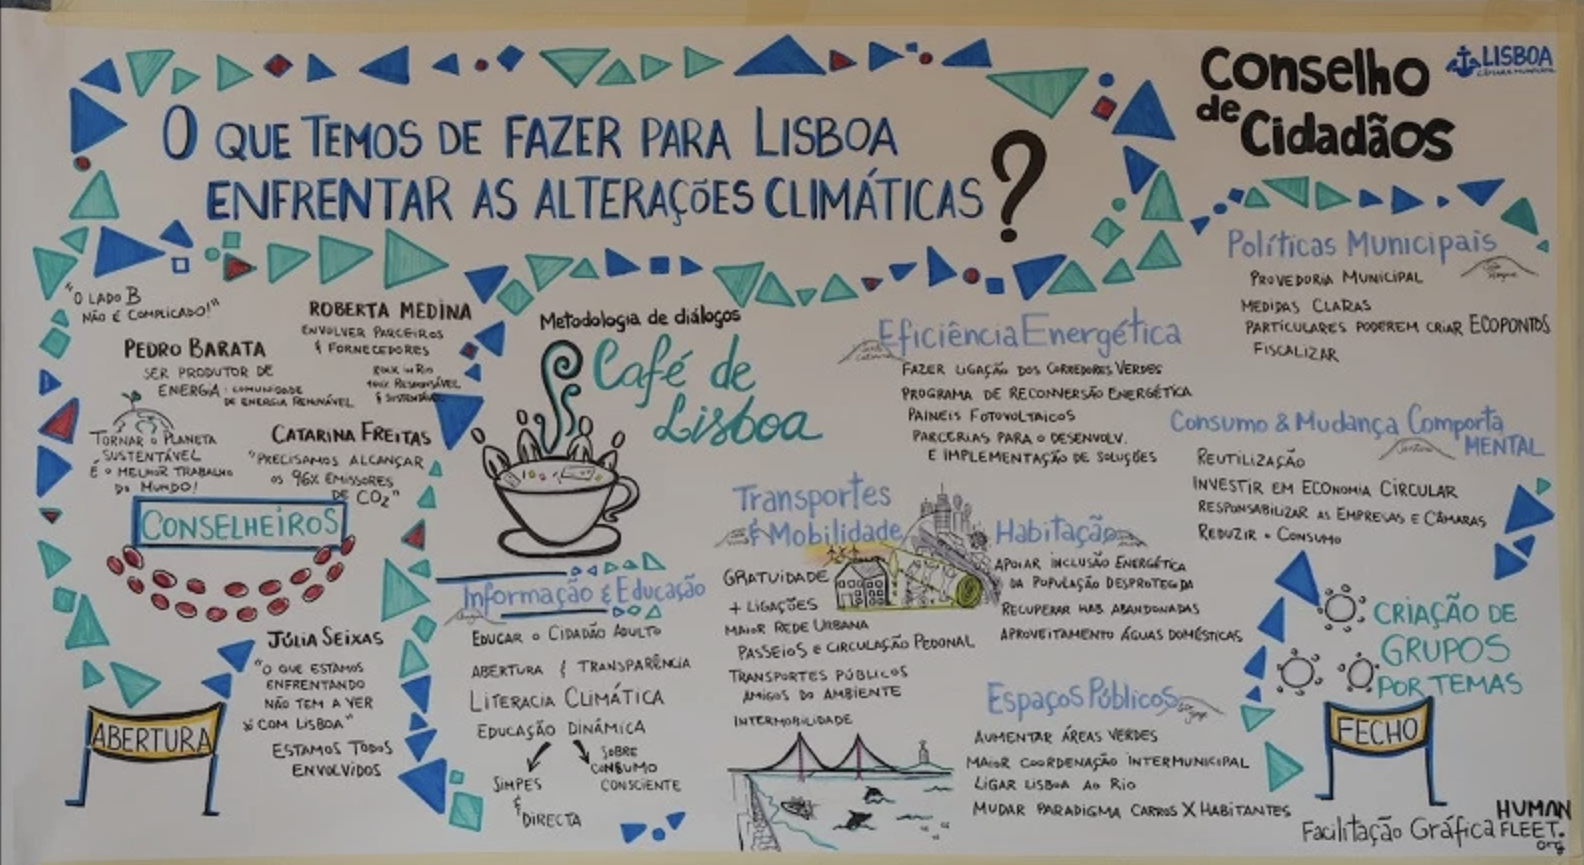 O QUE TEMOS DE FAZER PARA LISBOA
ENFRENTAR AS ALTERAÇÕES CLIMÁTICAS ?
Conselho
de Cidadãos
LISBOA
CÂMARA MUNICIPAL
"O LADO B
NÃO É COMPLICADO!"
PEDRO BARATA
SER PRODUTOR DE
ENERGIA: COMUNIDADE
DE ENERGIA RENOVÁVEL
TORNAR O PLANETA
SUSTENTÁVEL
É O MELHOR TRABALHO
DO MUNDO!
ROBERTA MEDINA
ENVOLVER PARCEIROS
& FORNECEDORES
ROCK IN RIO
100% RESPONSÁVEL
& SUSTENTÁVEL
CATARINA FREITAS
"PRECISAMOS ALCANÇAR
OS 96% EMISSORES
DE CO2"
CONSELHEIROS
JÚLIA SEIXAS
"O QUE ESTAMOS
ENFRENTANDO
NÃO TEM A VER
SÓ COM LISBOA"
ESTAMOS TODOS
ENVOLVIDOS
ABERTURA
Metodologia de diálogos
Café de
Lisboa
Informação & Educação
EDUCAR O CIDADÃO ADULTO
ABERTURA & TRANSPARÊNCIA
LITERACIA CLIMÁTICA
EDUCAÇÃO DINÂMICA
SIMPES
&
DIRECTA
SOBRE
CONSUMO
CONSCIENTE
Eficiência Energética
FAZER LIGAÇÃO DOS CORREDORES VERDES
PROGRAMA DE RECONVERSÃO ENERGÉTICA
PAINEIS FOTOVOLTAICOS
PARCERIAS PARA O DESENVOLV.
E IMPLEMENTAÇÃO DE SOLUÇÕES
Transportes
& Mobilidade
GRATUIDADE
+ LIGAÇÕES
MAIOR REDE URBANA
PASSEIOS E CIRCULAÇÃO PEDONAL
TRANSPORTES PÚBLICOS
AMIGOS DO AMBIENTE
INTERMOBILIDADE
Habitação
APOIAR INCLUSÃO ENERGÉTICA
DA POPULAÇÃO DESPROTEGIDA
RECUPERAR HAB. ABANDONADAS
APROVEITAMENTO ÁGUAS DOMÉSTICAS
Espaços Públicos
AUMENTAR ÁREAS VERDES
MAIOR COORDENAÇÃO INTERMUNICIPAL
LIGAR LISBOA AO RIO
MUDAR PARADIGMA CARROS X HABITANTES
Políticas Municipais
PROVEDORIA MUNICIPAL
MEDIDAS CLARAS
PARTICULARES PODEREM CRIAR ECOPONTOS
FISCALIZAR
Consumo & Mudança Comporta
MENTAL
REUTILIZAÇÃO
INVESTIR EM ECONOMIA CIRCULAR
RESPONSABILIZAR AS EMPRESAS E CÂMARAS
REDUZIR O CONSUMO
CRIAÇÃO DE
GRUPOS
POR TEMAS
FECHO
Facilitação Gráfica HUMAN
FLEET.
org